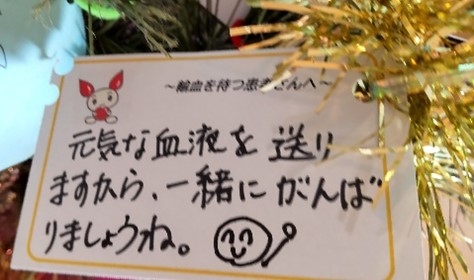 ～輸血を待つ患者さんへ～
元気な血液を送り
ますから、一緒にがんば
りましょうね。